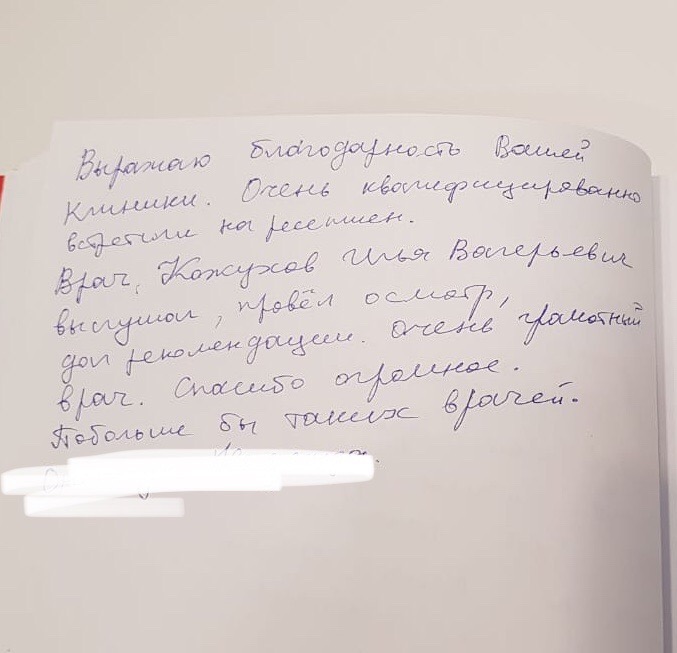 Выражаю благодарность Вашей
клиники. Очень квалифицированно
встретили на ресепшен.
Врач, Кожухов Илья Валерьевич
выслушал, провёл осмотр,
дал рекомендации. Очень грамотный
врач. Спасибо огромное.
Побольше бы таких врачей.